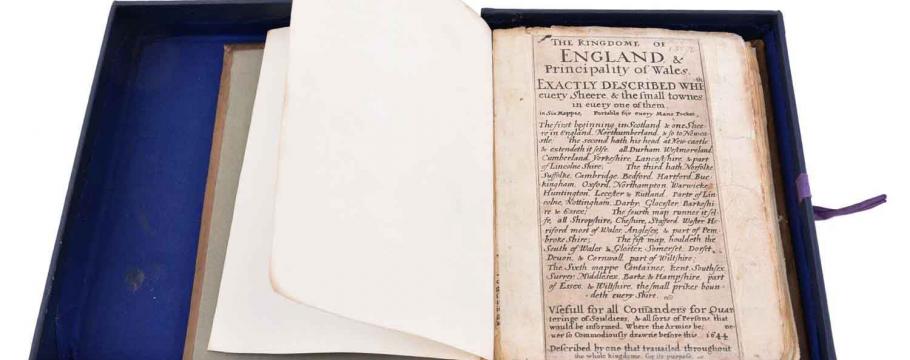 THE KINGDOME OF
ENGLAND, &
Principality of Wales,
EXACTLY DESCRIBED WHI
euery Sheere, & the small townes
in euery one of them,
in Six Mappes, Portable for euery Mans Pocket,
The first beginning in Scotland & one Shee-
re in England, Northumberland, & so to Newca-
stle: the second hath his head at New-castle
& extendeth it selfe. all Durham, Westmoreland
Cumberland, Yorkeshire, Lancashire, & part
of Lincolne Shire; The third hath Norfolke
Suffolke, Cambridge, Bedford, Hartford, Buc-
kingham, Oxford, Northampton, Warwicke,
Huntington, Lecester & Rutland, Parte of Lin
colne, Nottingham, Darby, Glocester, Barkeshi-
re & Essex; The fourth map runnes it sel-
fe, all Shropshire, Cheshire, Stafford, Wester He-
riford most of Wales, Anglesex, & part of Pem-
broke Shire; The fift map, houldeth the
South of Wales & Gloster, Somerset, Dorset,
Deuon, & Cornwall, part of Wiltshire;
The Sixth mappe Containes, Kent, Southsex
Surrey, Middlesex, Barke & Hampshire, part
of Essex, & Wiltshire, the small pricker boun-
deth euery Shire.
Vsefull for all Comanders for Quar
teringe of Souldiers, & all sorts of Persons, that
would be informed, Where the Armies be; ne-
uer so Commodiously drawne before this 1644
Described by one that trauailed throughout
the whole kingdome, for its purpose